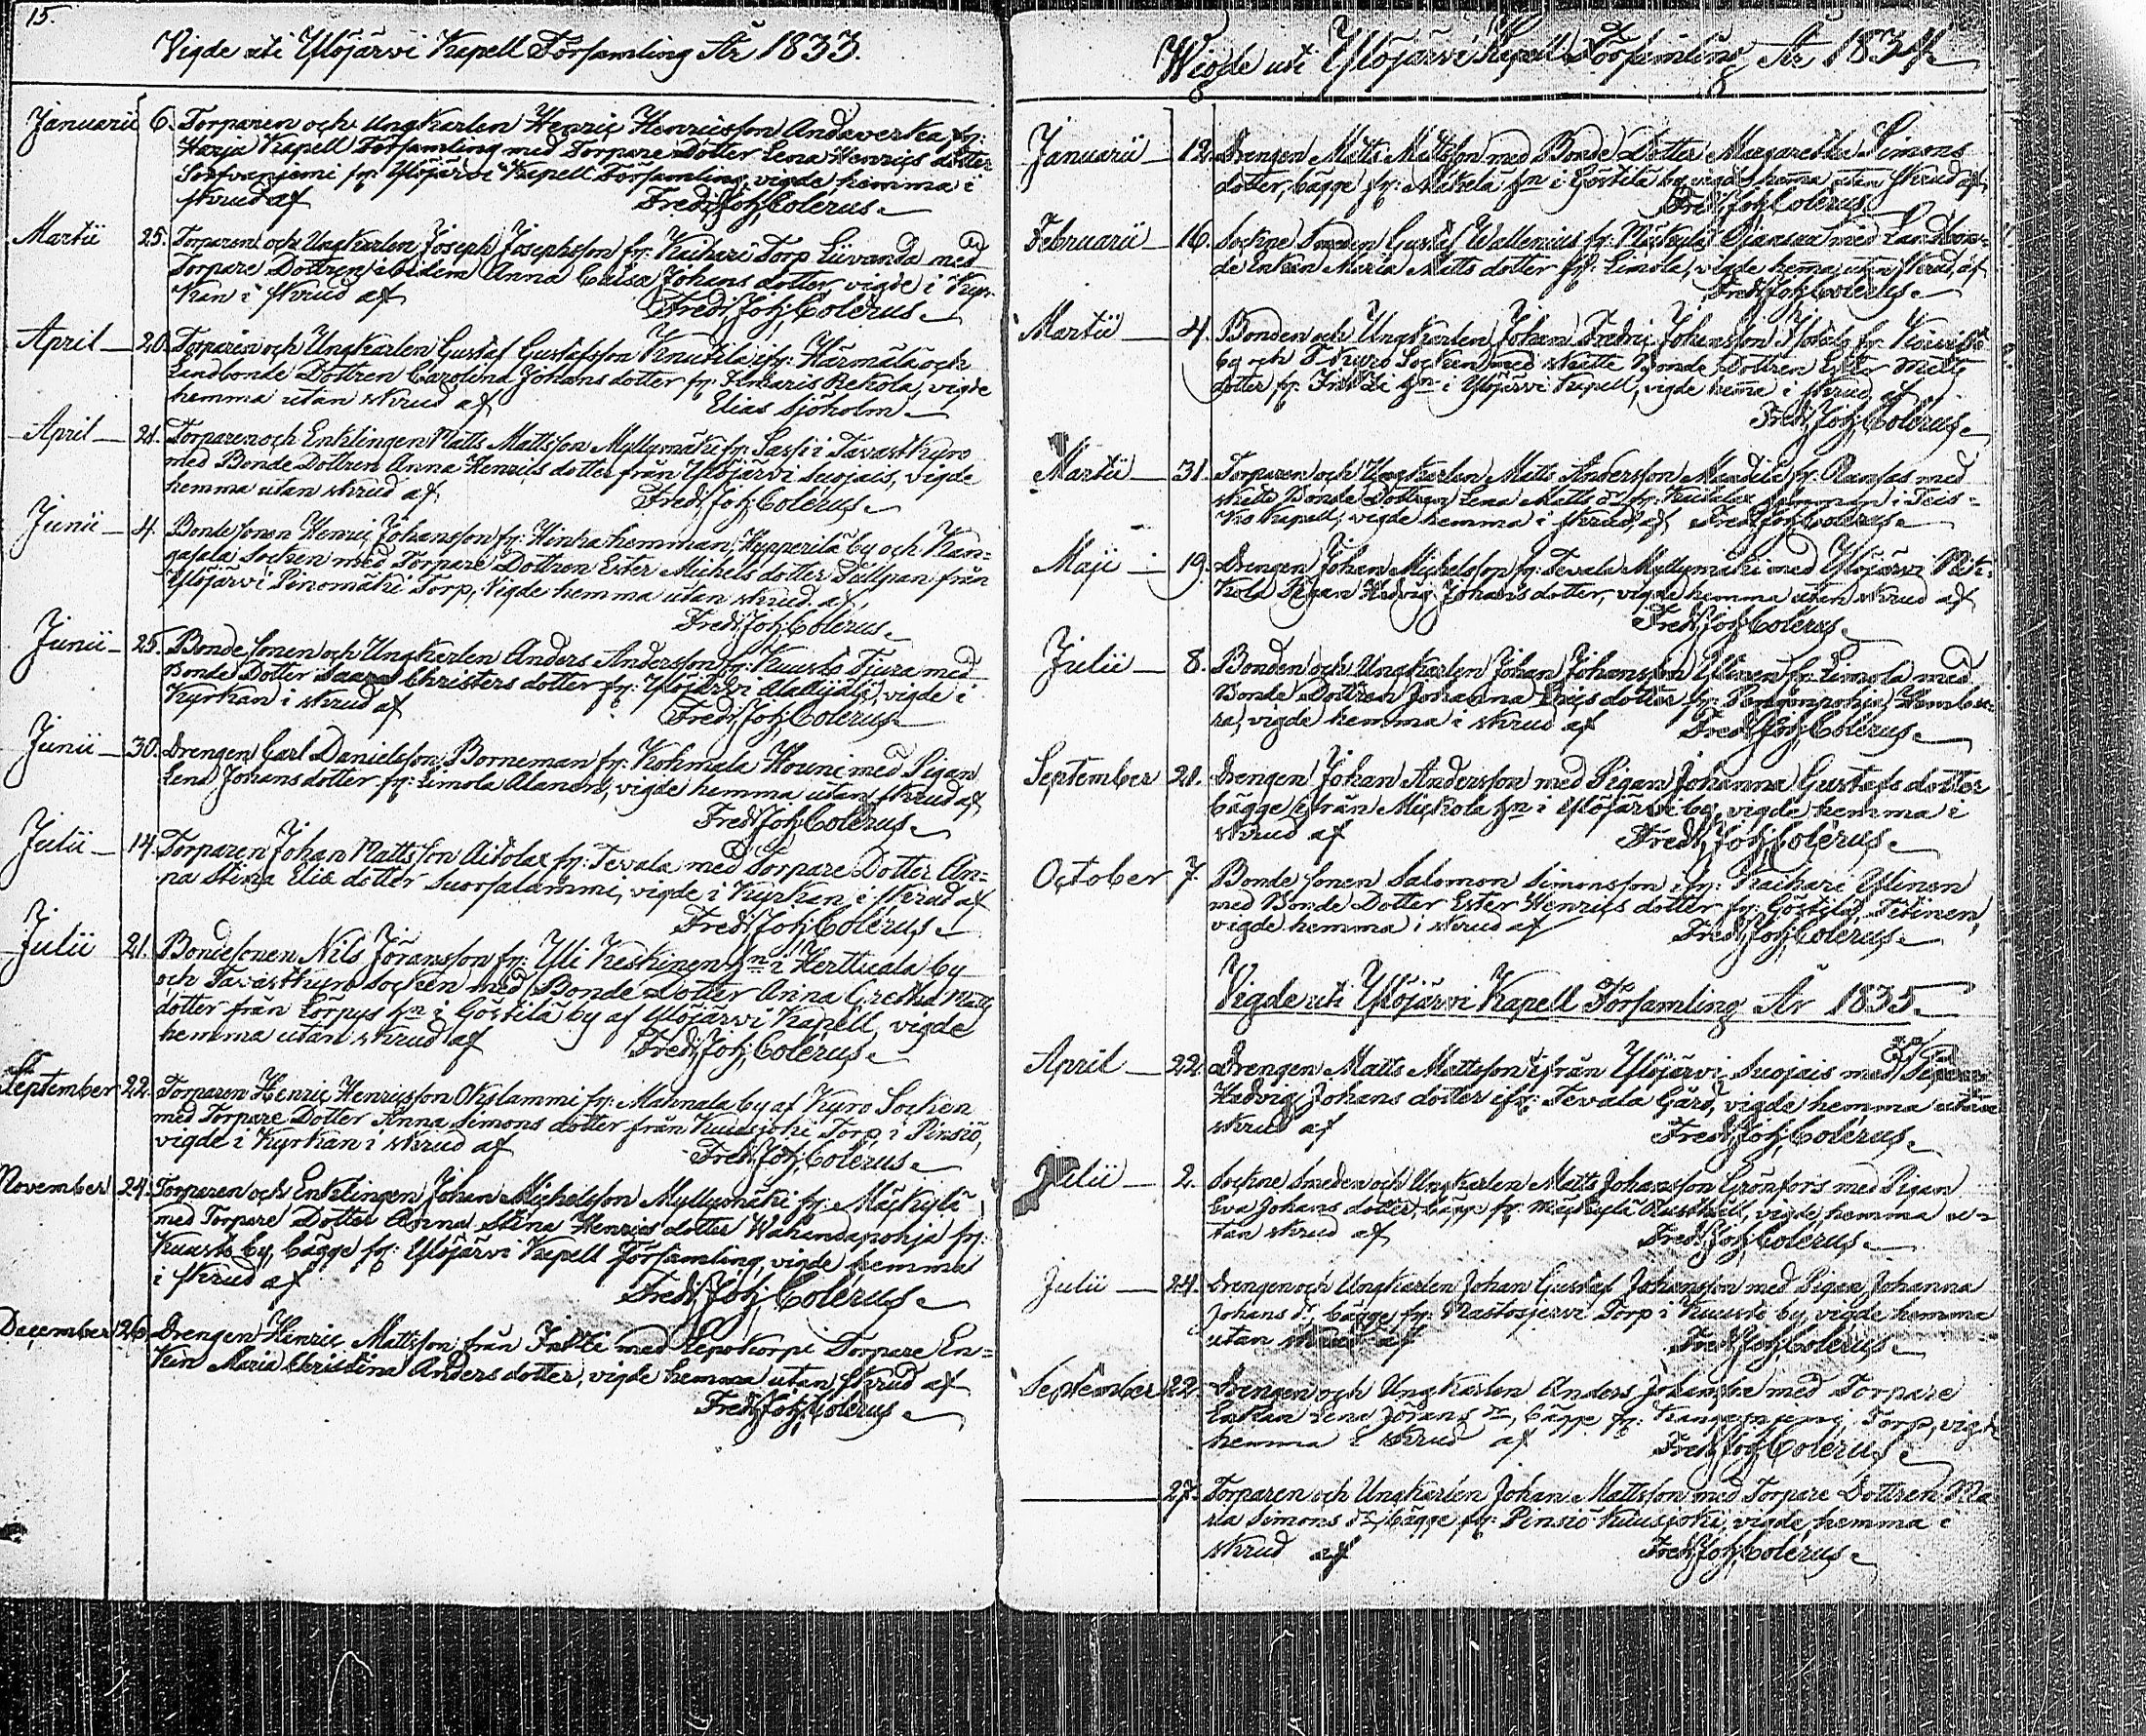 15.
Vigde uti Ylöjärvi Kapell Församling År 1833.
Januarii 6. Torparen och Ungkarlen Henric Henricsson Andaverka, fr:
Harju Kapell Församling med Torpare Dotter Lena Henrics dotter
fr: Ylöjärvi Kapell Församling, vigde hemma i
skrud af Fredr: Joh: Colérus.
Martii 25. Torparen och Ungkarlen Joseph Josephsson fr: Kaihari Torp Liivanda med
Torpare Dottren ibidem Anna Caisa Johans dotter, vigde i Kyr-
kan i skrud af Fredr: Joh: Colérus.
April 20. Torparen och Ungkarlen Gustaf Gustafsson Knutila ifr: Härmälä och
Landbonde Dottren Carolina Johans dotter fr: Ilmaris Rekola, vigde
hemma utan skrud af Elias Sjöholm
April 21. Torparen och Enklingen Matts Mattsson Myllymäki fr: Sassi i Tavastkyro
med Bonde Dottren Anna Henrics dotter från Ylöjärvi Suojais, vigde
hemma utan skrud af. Fredr: Joh: Colérus.
Junii 4. Bondesonen Henric Johansson fr: Hinha hemman, Hypperilä by och Kan-
gasala Socken med Torpare Dottren Ester Michels dotter från
Ylöjärvi Pinomäki Torp, Vigde hemma utan skrud af,
Fredr: Joh: Colérus.
Junii 25. Bonde Sonen och Ungkarlen Anders Andersson fr: Kuusto Tjura med
Bonde Dotter Christers dotter fr: Ylöjärvi, vigde i
Kyrkan i skrud af Fredr: Joh: Colérus
Junii 30. Drengen Carl Danielsson Borneman fr: Kohmala Houni med Pigan
Lena Johans dotter fr: Limola Alanen, vigde hemma utan skrud af
Fredr: Joh: Colérus.
Julii 14. Torparen Johan Mattsson Aitolax fr: Tevala med Torpare Dotter An-
na Stina Elia dotter Suorsalammi, vigde i Kyrkan i skrud af
Fredr: Joh: Colérus.
Julii 21. Bondesonen Nils Jöransson fr: Yli Keskinen hn i Herttuala by
och Tavastkyro Socken med Bonde Dotter Anna Gretha Matts
dotter från Lörpys hn i Göstilä by af Ylöjärvi Kapell, vigde
hemma utan skrud af Fredr: Joh: Colérus.
September 22. Torparen Henric Henricsson Okslammi fr: Mahnala by af Kyro Socken
med Torpare Dotter Anna Simons dotter från Kuusjoki Torp i Pinsiö,
vigde i Kyrkan i skrud af Fredr: Joh: Colérus.
November 24. Torparen och Enklingen Johan Michelsson Myllymäki fr: Mäckylä
med Torpare Dotter Anna Stina Henrics dotter Wahandapohja fr:
Kuusto by, bägge fr: Ylöjärvi Kapell Församling, vigde hemma
i skrud af Fredr: Joh: Colérus.
December 26. Drengen Henric Mattsson från Intti med Lepokorpi Torpare En-
kin Maria Christina Anders dotter, vigde hemma utan skrud af
Fredr: Joh: Colérus.
Wigde uti Ylöjärvi Kapell Församling År 1834.
Januarii 12. Drengen Matts Mattsson med Bonde Dotter Margaretha Simons
dotter, bägge fr: Mikkelä hn i Göstilä by, vigde hemma utan skrud af
Fredr: Joh: Colérus.
Februarii 16. Sockne Smeden Gustaf Wallenius fr: Mäckylä med Landbon-
de Enkan Maria Matts dotter fr: Limola, vigde hemma utan skrud, af
Fredr: Joh: Colérus.
Martii 4. Bonden och Ungkarlen Johan Fredric Johansson fr:
by och Kyro Socken med Skatte Bonde Dottren Ester Matts
dotter, fr: Intti hn i Ylöjärvi Kapell, vigde hemma i skrud af
Fredr: Joh: Colérus.
Martii 31. Torparen och Ungkarlen Matts Andersson fr: med
Skatte Bonde Dottren Lena Matts dr fr: hemman i Teis-
ko Kapell, vigde hemma i skrud af Fredr: Joh: Colérus.
Maji 19. Drengen Johan Michelsson fr: Tevala Myllymäki med Ylöjärvi Mic-
kola Pigan Hedvig Johans dotter, vigde hemma utan skrud af
Fredr: Joh: Colérus.
Julii 8. Bonden och Ungkarlen Johan Johansson Ylinen fr: Limola med
Bonde Dottren Johanna Erics dotter fr: Pengonpohja,
vigde hemma i skrud af Fredr: Joh: Colérus.
September 21. Drengen Johan Andersson med Pigan Johanna Gustafs dotter
bägge ifrån Mickola hn i Ylöjärvi by, vigde hemma i
skrud af Fredr: Joh: Colérus.
October 7. Bonde Sonen Salomon Simonsson ifr: Kaihari Ylinen
med Bonde Dotter Ester Henrics dotter fr: Göstilä,
vigde hemma i skrud af Fredr: Joh: Colérus.
Vigde uti Ylöjärvi Kapell Församling År 1835.
April 22. Drengen Matts Mattsson ifrån Ylöjärvi Suojais med Pigan
Hedvig Johans dotter ifr: Tevala Gård, vigde hemma utan
skrud af Fredr: Joh: Colérus.
Julii 2. Sockne Smeden och Ungkarlen Matts Johansson Grönfors med Pigan
Eva Johans dotter, bägge fr: Mäckylä, vigde hemma u-
tan skrud af Fredr: Joh: Colérus.
Julii 24. Drengen och Ungkarlen Johan Gustaf Johansson med Pigan Johanna
Johans dr, bägge fr: Mastosjervi Torp i Kuusto by, vigde hemma
utan skrud af Fredr: Joh: Colérus.
September 22. Drengen och Ungkarlen Anders Johansson med Torpare
Enkan Lena Jörans dr, bägge fr: Torp, vigde
hemma i skrud af Fredr: Joh: Colérus.
27. Torparen och Ungkarlen Johan Mattsson med Torpare Dottren Ma-
ria Simons dr, bägge fr: Pinsiö Kuusjoki, vigde hemma i
skrud af Fredr: Joh: Colérus.